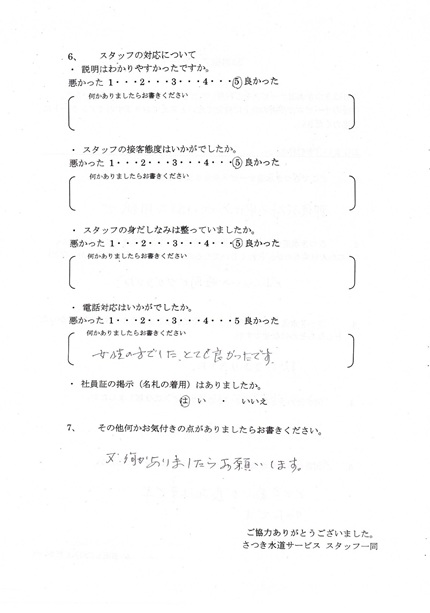 6、 スタッフの対応について
・ 説明はわかりやすかったですか。
悪かった 1・・・2・・・3・・・4・・・5 良かった
何かありましたらお書きください
・ スタッフの接客態度はいかがでしたか。
悪かった 1・・・2・・・3・・・4・・・5 良かった
何かありましたらお書きください
・ スタッフの身だしなみは整っていましたか。
悪かった 1・・・2・・・3・・・4・・・5 良かった
何かありましたらお書きください
・ 電話対応はいかがでしたか。
悪かった 1・・・2・・・3・・・4・・・5 良かった
何かありましたらお書きください
女性の方でした、とても良かったです。
・ 社員証の掲示（名札の着用）はありましたか。
はい ・ いいえ
7、 その他何かお気付きの点がありましたらお書きください。
又、何かありましたらお願いします。
ご協力ありがとうございました。
さつき水道サービス スタッフ一同